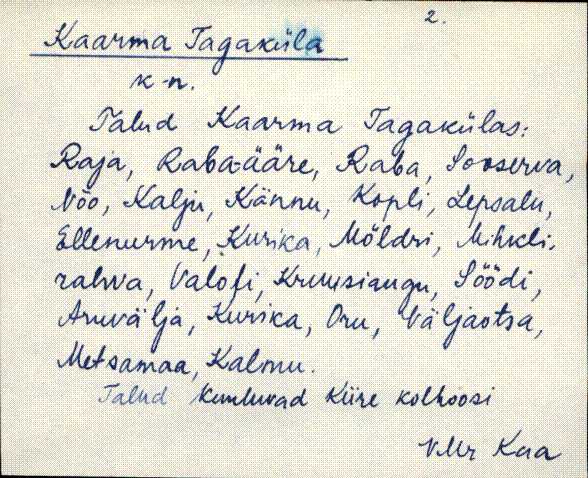 2.
Kaarma Tagaküla
k-n.
Talud Kaarma Tagakülas:
Raja, Raba-ääre, Raba, Sooserva,
Nõo, Kalju, Kännu, Kopli, Lepsalu,
Ellenurme, Kurika, Möldri, Mihkli-
rahva, Valofi, Kruusiaugu, Söödi,
Aruvälja, Kurika, Oru, Väljaotsa,
Metsamaa, Kalmu.
Talud kuuluvad Kiire kolhoosi
VMr Kaa